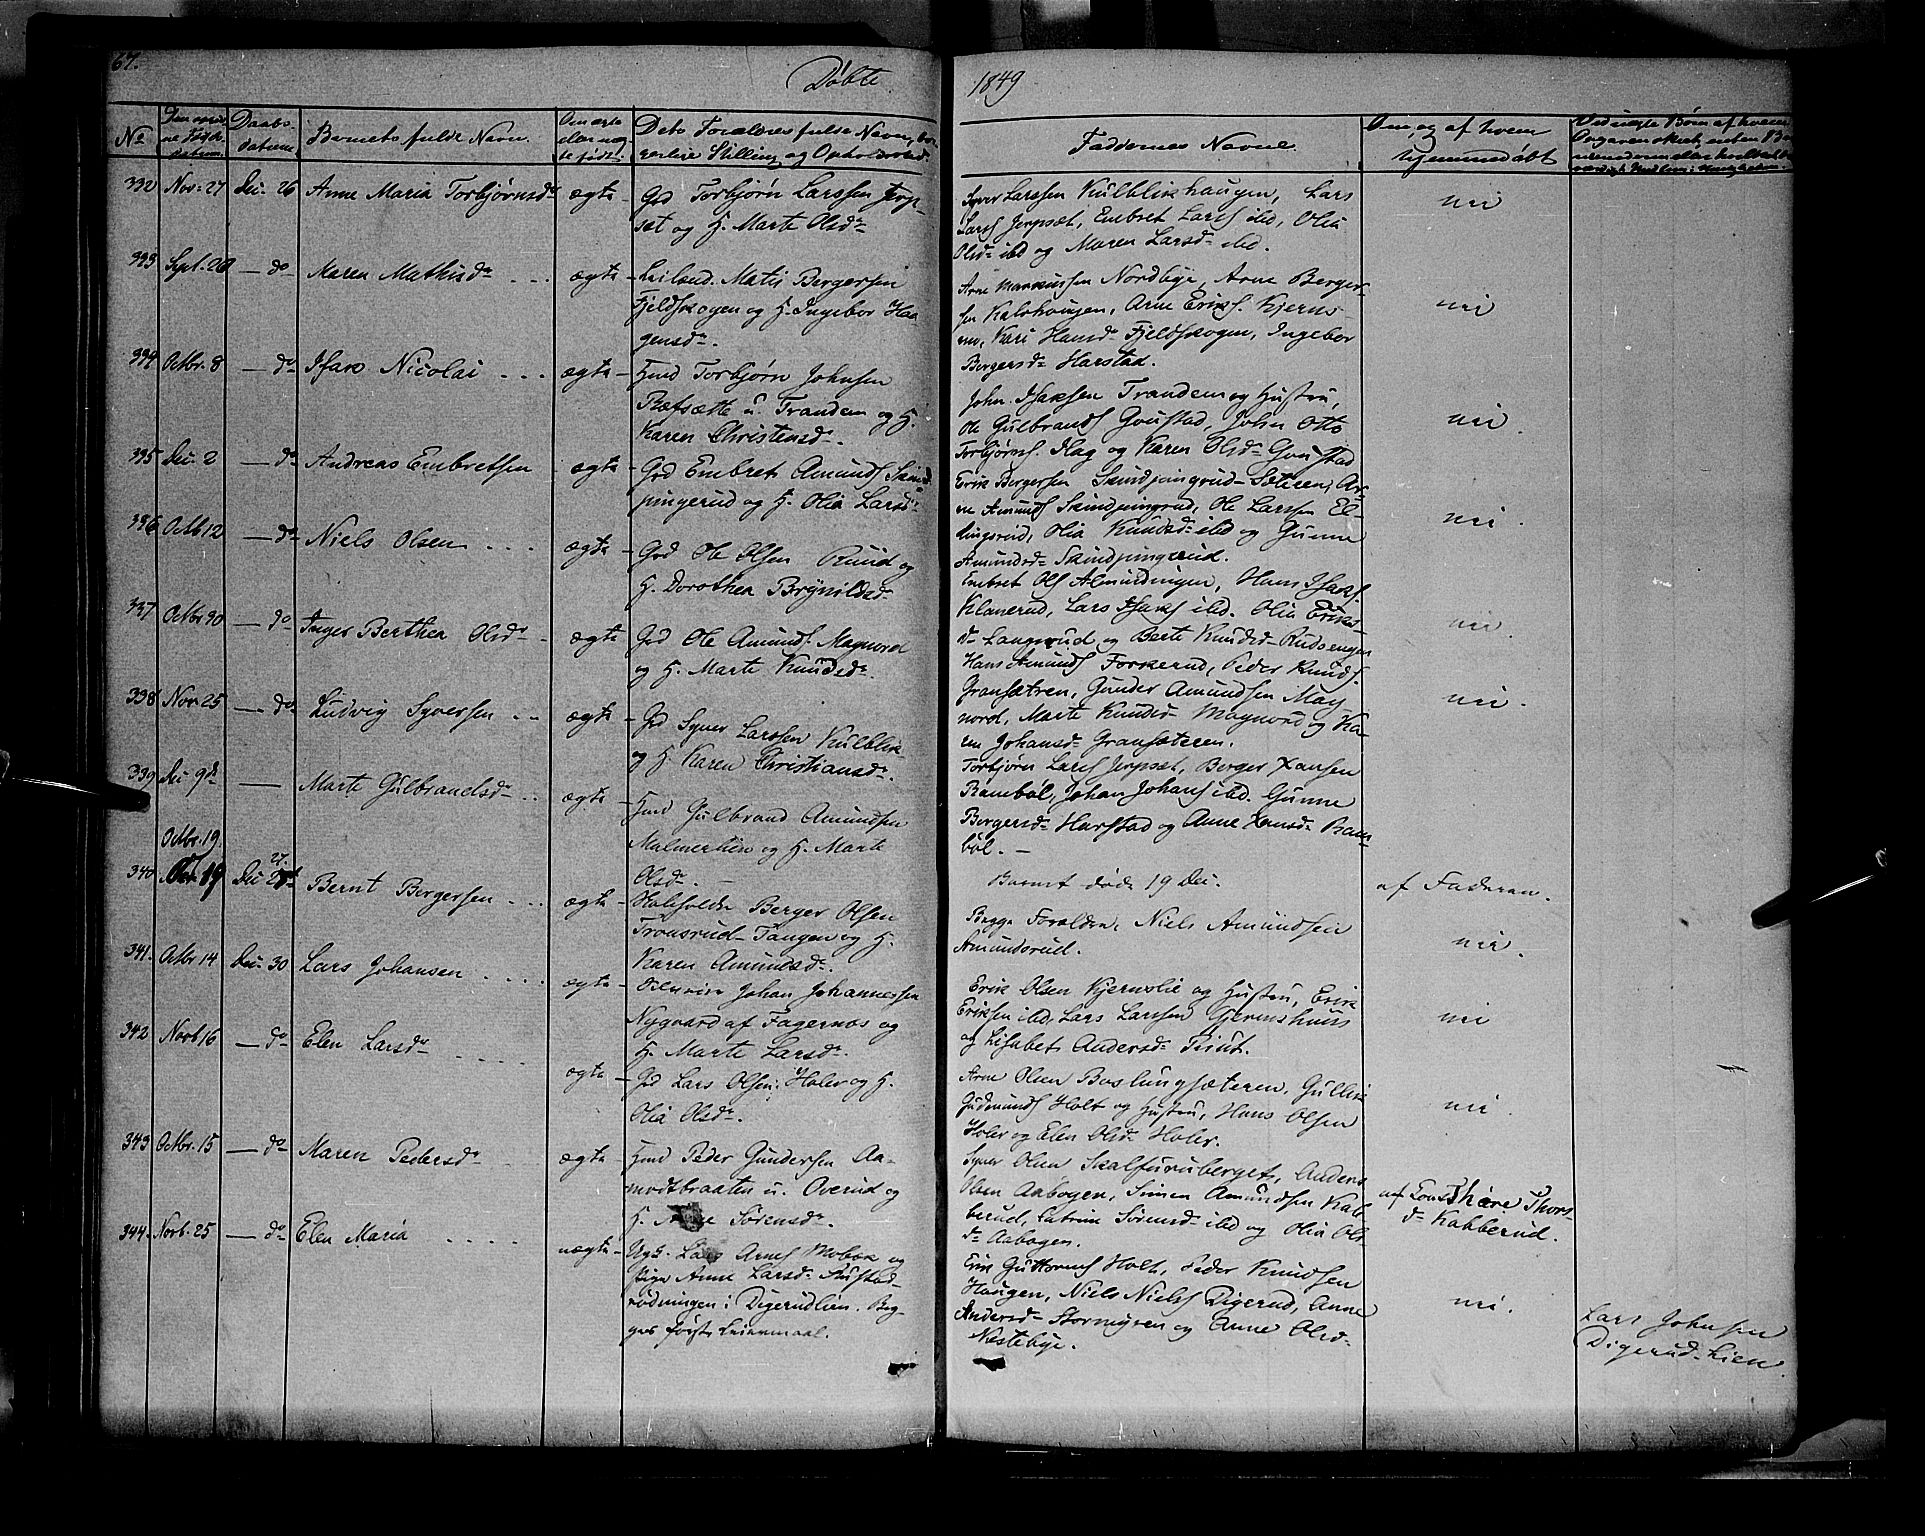 67.
Døbte
1849
No
Daabs-
datum
Barnets fulde Navn.
Dets Forældres fulde Navn, bor-
gerlige Stilling og Opholdssted
Faddernes Navne.
Om, og af hvem
hjemmedøbt
332 Nov. 27 Dec. 26 Anne Maria Torbjørnsdr ægte Grd Torbjørn Larssen Jerp-
set og H. Marte Olsdr
Syver Larssen Kulblikhaugen, Lars
Larss Jerpset, Embret Larss ibd, Olia
Olsdr ibd og Maren Larsdr ibd.
nei
333 Sept. 20 — do Karen Mathisdr ægte Leilænd. Matis Bergersen
Fjeldskogen og H. Ingebor Haa
gensdr.
Arne Nordbye, Arne Berger-
sen Kalshaugen, Arne Eriks. Kjerns-
mo, Kari Hansdr Fjeldskogen, Ingebor
Bergersdr Harstad.
nei
334 Octbr. 8 — do Isak Nicolai ægte Hmd Torbjørn Johnsen
Ræfsætte u. Trandem og H.
Karen Christensdr.
John Isaksen Trandem og Hustru,
Ole Gulbrands Goustad, John Otto
Torbjørns. Hag og Karen Olsdr Goustad
nei.
335 Dec. 2 — do Andreas Embretsen ægte Grd Embret Amunds Skind-
pungerud og H. Olia Larsdr
Erik Bergersen Skindpungrud-Setren, Ar-
ne Amunds Skindpungrud, Ole Larssen El-
lingsrud, Olia Knudsdr ibd og Gunne
Amundsdr Skindpungrud.
nei.
336 Octb 12 — do Niels Olsen ægte Grd Ole Olsen Ruud og
H. Dorothea Brynildsdr
Embret Ols Almindingen, Hans Isaks.
Klanerud, Lars Isaks ibd. Olia Eriks-
dr Langerud og Berte Knudsdr Rudsengen
nei.
337 Octbr 30 — do Inger Berthea Olsdr ægte Grd Ole Amunds. Magnord
og H. Marte Knudsdr.
Hans Amunds Forkerud, Peder Knuds.
Gransætren, Gunder Amundsen Mag-
nord, Marte Knudsdr Magnord og Ka-
ren Johansdr Gransæteren.
nei.
338 Nov. 25 — do Ludvig Syversen ægte Grd Syver Larssen Kulblik
og H Karen Christiansdr.
Torbjørn Larss Jerpset, Berger Hansen
Rambøl, Johan Johans ibd. Gunne
Bergersdr Harstad og Anne Hansdr Ram-
bøl. —
339 Dec 9de — Marte Gulbrandsdr ægte Hmd Gulbrand Amundsen
Malmerlien og H. Marte
Olsdr. —
Barnet døde 19 Dec.
af Faderen.
Octbr. 19
340 Dec 27. Bernt Bergersen ægte Huseholdr Berger Olsen
Tronsrud-Tangen og H.
Karen Amundsdr.
Begge Forældre, Niels Amundsen
Amundsrud.
nei.
341. Octbr 14 Dec. 30 Lars Johansen ægte Johan Johannessen
Nygaard af Fagernæs og
H. Marte Larsdr.
Erik Olsen Kjernslie og Hustru, Erik
Eriksen ibd, Lars Larssen Gjermshuus
og Lisabet Andersdr
nei
342 Novb 16 — do Elen Larsdr ægte Grd Lars Olsen Holer og H.
Olia Olsdr.
Arne Olsen Baslungsæteren, Gullik
Gudmunds Holt og Hustru, Hans Olsen
Holer og Elen Olsdr Holer.
nei.
343 Octbr. 15 — do Maren Pedersdr ægte Hmd Peder Gundersen Aa-
modtbraaten u. Overud og
H. Sørensdr.
Syver Olsen Skalfuruberget, Anders
Olsen Aabogen, Simen Amundsen Kab-
berud, Catrine Sørensdr ibd og Olia Ols-
dr Aabogen.
af Thore Thors-
dr Kabberud.
344. Novb. 25 — do Elen Maria uægte Ugk. Lars Arnes Mobæk og
Pige Anne Larsdr
rødningen i Digerudlien. Beg-
ges første Leiermaal.
Erik Guttorms Holt, Peder Knudsen
Haugen, Niels Niels Digerud, Anne
Andersdr Stormyren og Anne Olsdr
Nestebye.
nei.
Lars Johnsen
Digerud-Lien